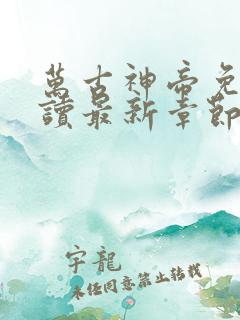 萬古神帝免
讀最新章節
宇龍
未经同意禁止转载